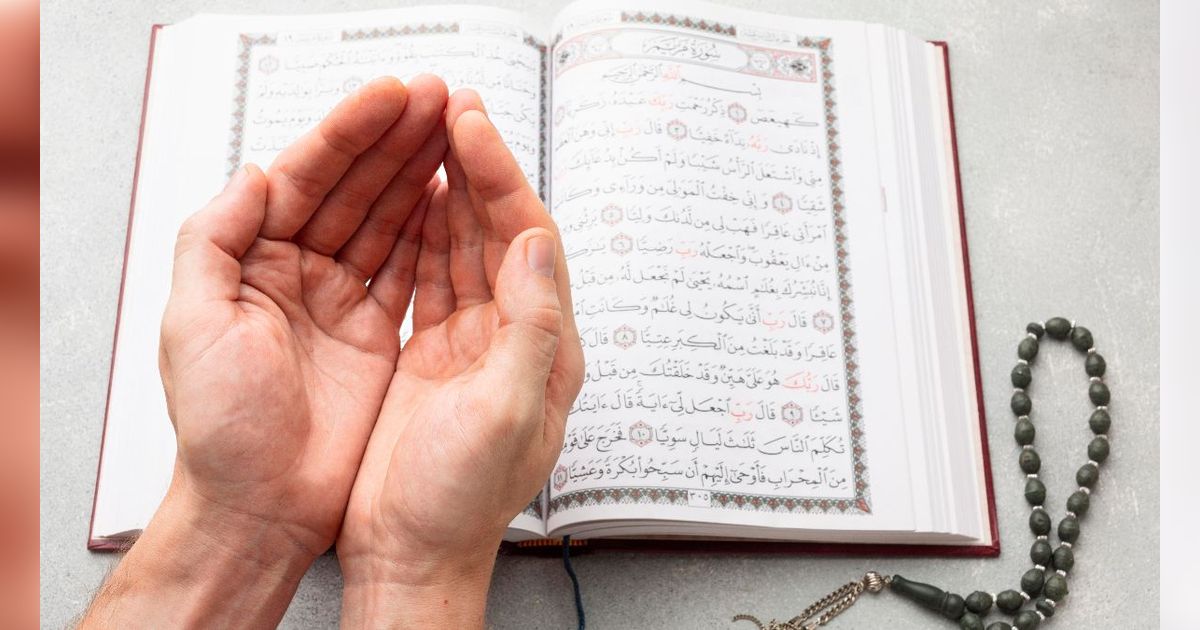 سُورَةُ مَرْيَمَ
بِسْمِ ٱللَّهِ ٱلرَّحْمَٰنِ ٱلرَّحِيمِ
كٓهيعٓصٓ ١ ذِكْرُ رَحْمَتِ رَبِّكَ عَبْدَهُۥ زَكَرِيَّآ
إِذْ نَادَىٰ رَبَّهُۥ نِدَآءً خَفِيًّا ٣ قَالَ رَبِّ إِنِّي وَهَنَ ٱلْعَظْمُ
مِنِّي وَٱشْتَعَلَ ٱلرَّأْسُ شَيْبًا وَلَمْ أَكُنۢ بِدُعَآئِكَ
شَقِيًّا ٤ وَإِنِّي خِفْتُ ٱلْمَوَٰلِيَ مِن وَرَآءِي وَكَانَتِ
ٱمْرَأَتِي عَاقِرًا فَهَبْ لِي مِن لَّدُنكَ وَلِيًّا ٥ يَرِثُنِي
مِنْ ءَالِ يَعْقُوبَ وَٱجْعَلْهُ رَبِّ رَضِيًّا ٦
إِنَّا نُبَشِّرُكَ بِغُلَٰمٍ ٱسْمُهُۥ يَحْيَىٰ لَمْ نَجْعَل لَّهُۥ مِن قَبْلُ
٧ قَالَ رَبِّ أَنَّىٰ يَكُونُ لِي غُلَٰمٌ وَكَانَتِ
عَاقِرًا وَقَدْ بَلَغْتُ مِنَ ٱلْكِبَرِ عِتِيًّا ٨ قَالَ
قَالَ رَبُّكَ هُوَ عَلَيَّ هَيِّنٌ وَقَدْ خَلَقْتُكَ مِن قَبْلُ
شَيْـًٔا ٩ قَالَ رَبِّ ٱجْعَل لِّيٓ ءَايَةً قَالَ ءَايَتُكَ
تُكَلِّمَ ٱلنَّاسَ ثَلَٰثَ لَيَالٍ سَوِيًّا ١٠ فَخَرَجَ عَلَىٰ
مِنَ ٱلْمِحْرَابِ فَأَوْحَىٰٓ إِلَيْهِمْ أَن سَبِّحُوا۟ بُكْرَةً وَعَشِيًّا ١١
٣٠٥